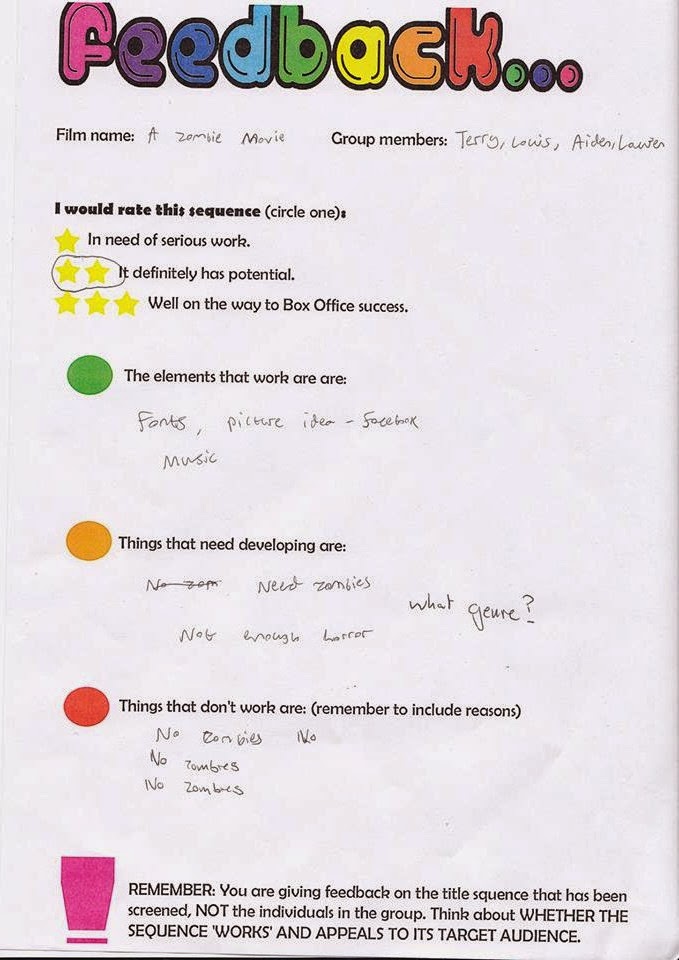 Feedback...
Film name: A Zombie Movie Group members: Terry, Louis, Aiden, Lauren
I would rate this sequence (circle one):
In need of serious work.
It definitely has potential.
Well on the way to Box Office success.
The elements that work are are:
Fonts, picture idea - facebook
Music
Things that need developing are:
No zom Need zombies
what genre?
Not enough horror
Things that don't work are: (remember to include reasons)
No zombies No
No zombies
No zombies
REMEMBER: You are giving feedback on the title squence that has been
screened, NOT the individuals in the group. Think about WHETHER THE
SEQUENCE 'WORKS' AND APPEALS TO ITS TARGET AUDIENCE.